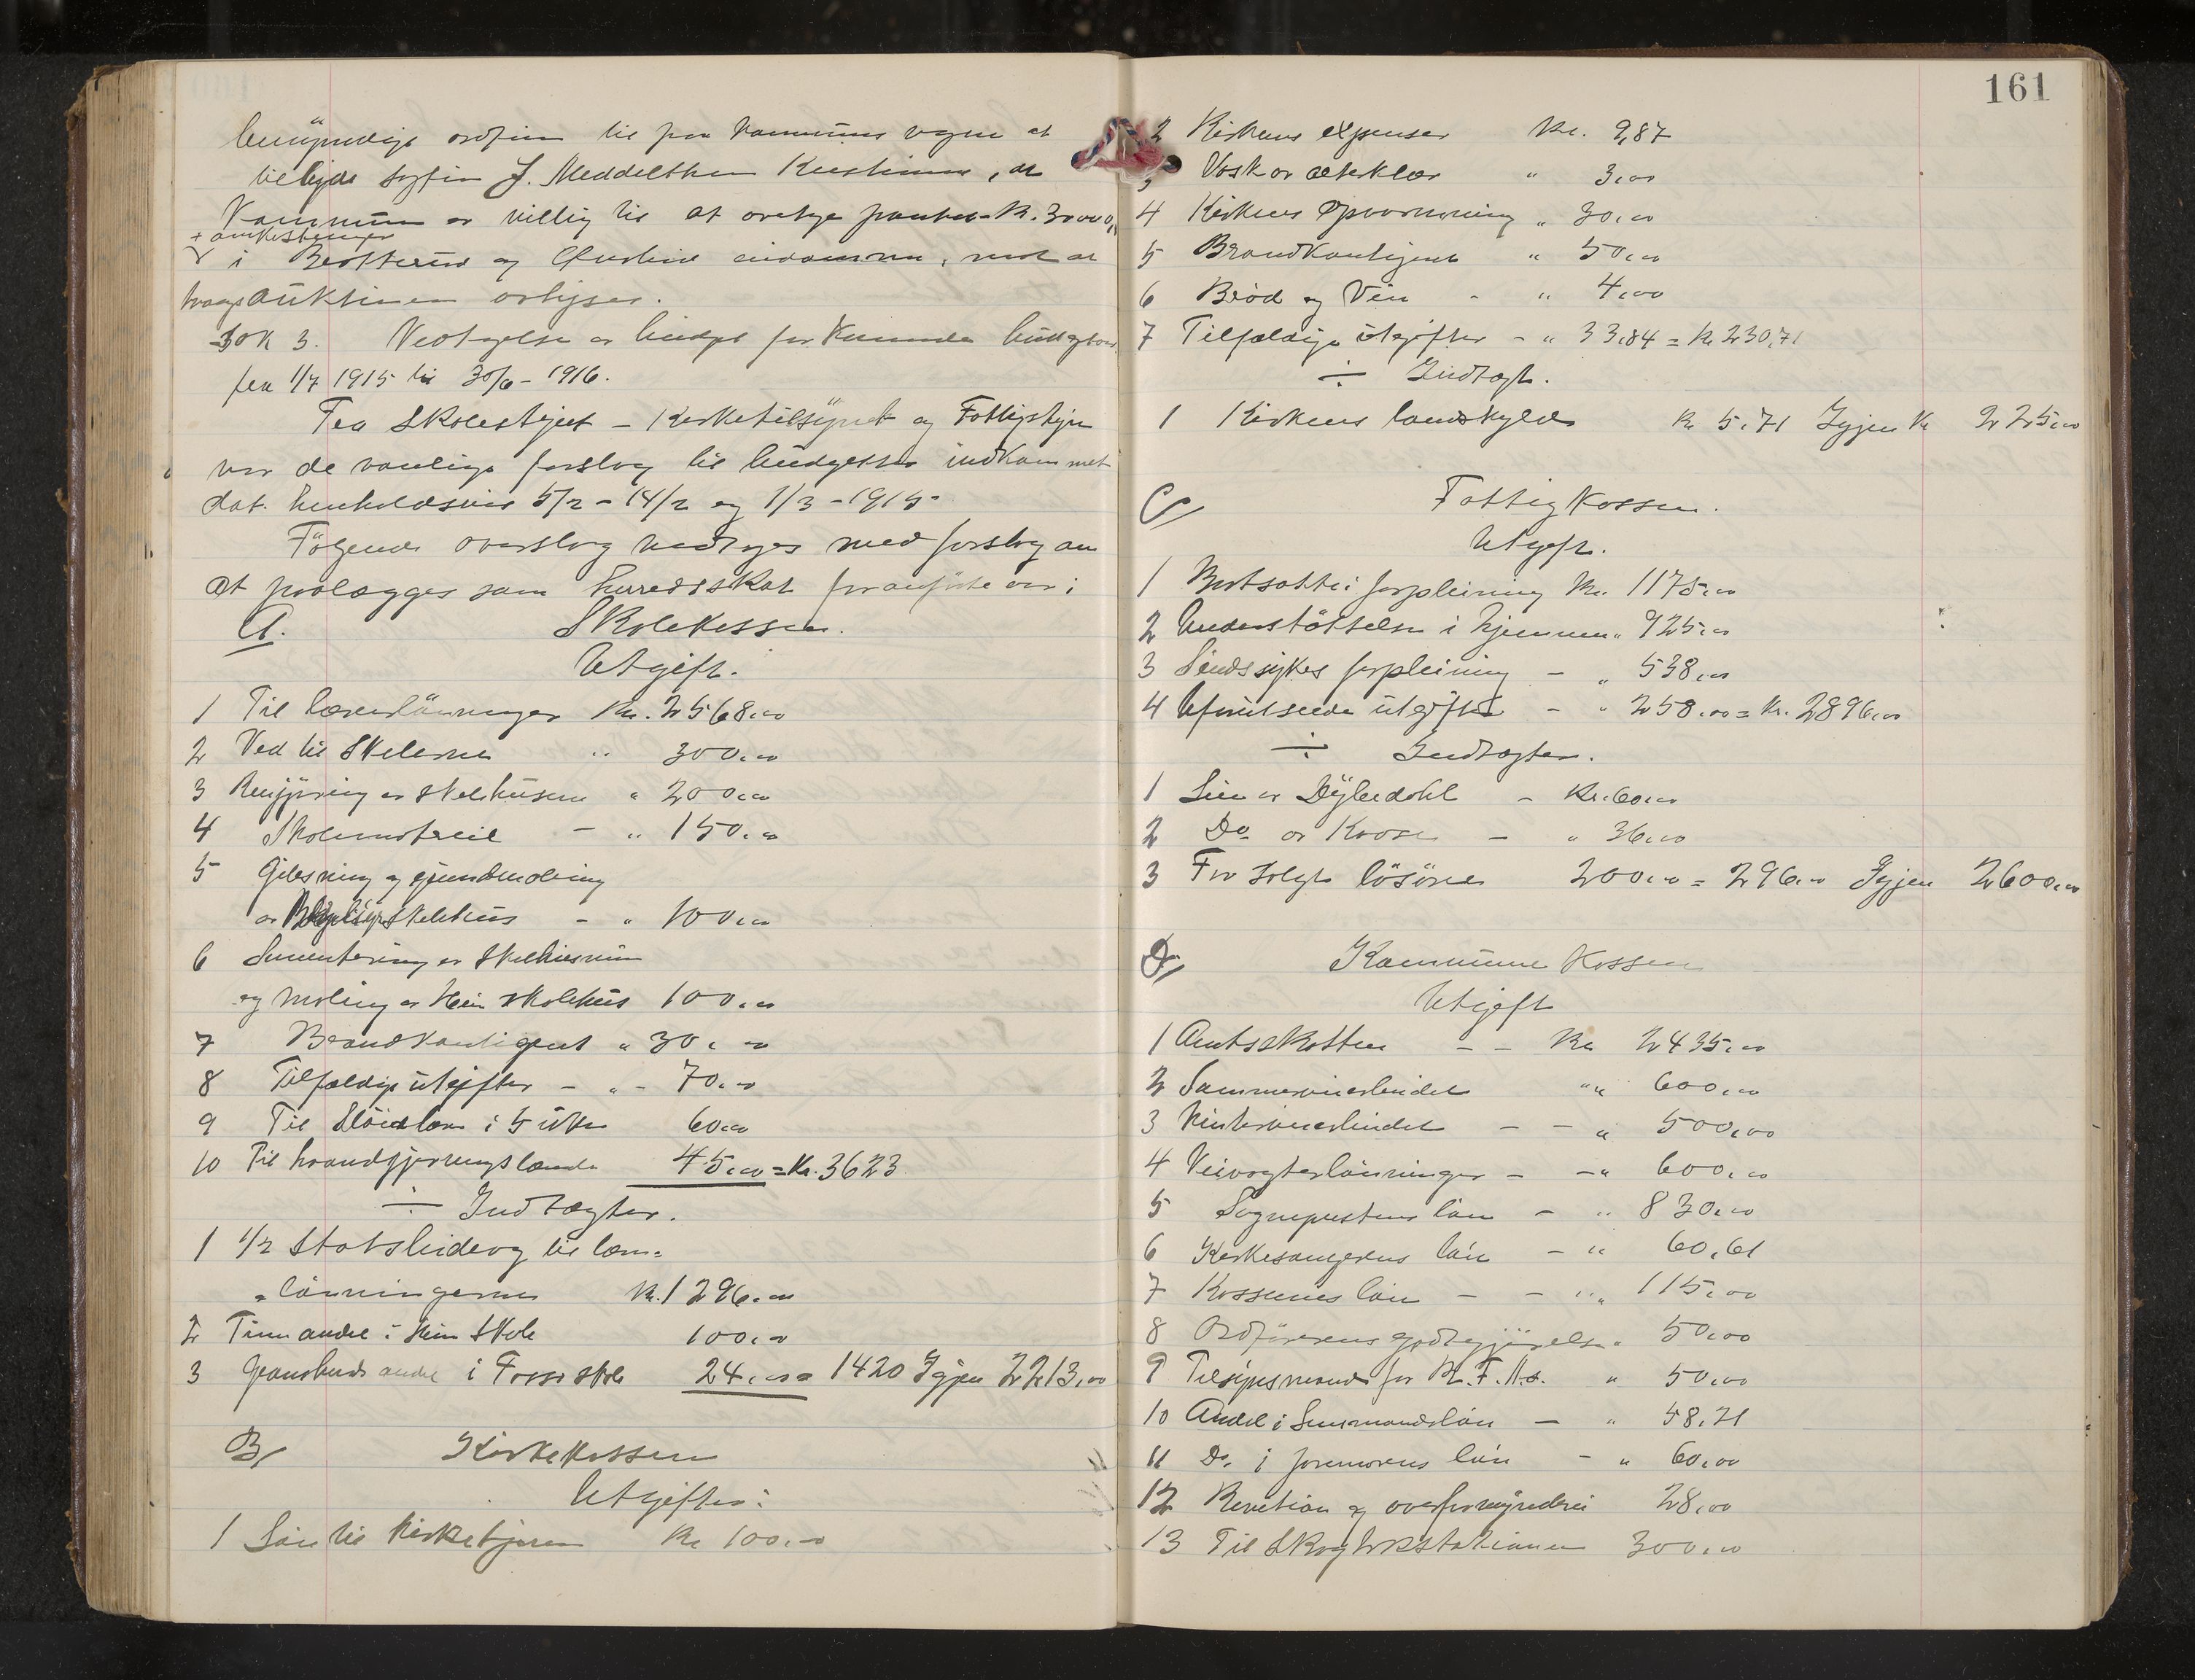 bemyndige ordføren til paa kommunens vegne at
sagfører J. Meddelthon Kristiania, at
Kommunen er villig til at overtage pantet kr. 30000,
+ omkostninger
i og eiendomme, ved at
tvangsauktionen avlyses.
Sak 3. Vedtagelse av budget for Kommunens budgetaar
fra 1/7 1915 til 30/6 - 1916.
Fra Skolestyret - Kirketilsynet og Fattigstyre
var de vanlige forslag til budgetter indkommet
dat. henholdsvis 5/2 - 14/2 og 1/3 - 1915.
Følgende overslag vedtages med forslag om
at paalægges som herredsskat for anførte aar:
A. Skolekassen.
Utgift.
1 Til lærerlønninger Kr. 2568,00
2 Ved til Skolerne " 300,00
3 Rengjøring av skolehusene " 200,00
4 Skolemateriel - " 150,00
5 og grundmaling
av skolehus - " 100,00
6 Sementering av
og maling av Hein skolehus 100,00
7 Brandkontigent " 30,00
8 Tilfældige utgifter - " - 70,00
9 Til Sløidlærer i 5 uker 60,00
10 Til haandgjerningslærerinde 45,00 = Kr. 3623
÷ Indtægter.
1 1/2 Statsbidrag til lærer-
- lønningerne Kr. 1296,00
2 andel i Hein Skole 100,00
3 Gransherads andel i Fosse skole 24,00 = 1420 Igjen 2213,00
B/ Kirkekassen
Utgifter:
1 Løn til kirketjeneren Kr 100,00
161
2 Kirkens expenser Kr. 9,87
3 Vask av alterklær " 3,00
4 Kirkens opvarmning " 30,00
5 Brandkontigent " 50,00
6 Brød og Vin - " 4,00
7 Tilfældige utgifter - " 33,84 = Kr 230,71
÷ Indtægt.
1 Kirkens landskyld Kr 5,71 Igjen Kr 225,00
C/ Fattigkassen.
Utgift.
1 Bortsatte i forpleining Kr. 1175,00
2 Understøttelse i hjemmen " 925,00
3 Sindssykes forpleining - " 538,00
4 Uforutseede utgifter - " 258,00 = Kr. 2896,00
÷ Indtægter.
1 Leie av - Kr. 60,00
2 Do av - " 36,00
3 For solgt løsøre 200,00 = 296,00 Igjen 2600,00
D/ Kommunekassen
Utgift
1 Amtsskatten - - Kr 2435,00
2 Sommerveiarbeidet " " 600,00
3 Vinterveiarbeidet - - " 500,00
4 Veivogterlønninger - - " 600,00
5 Sogneprestens løn - " 830,00
6 Kirkesangerens løn - " 60,61
7 Kassererens løn - - " " 115,00
8 Ordførerens godtgjørelse " 50,00
9 Tilsynsmand for " 50,00
10 Andel i Lensmandsløn - " 58,21
11 Do i jormorens løn - " 60,00
12 Revetion og overformynderi 28,00
13 Til 300,00